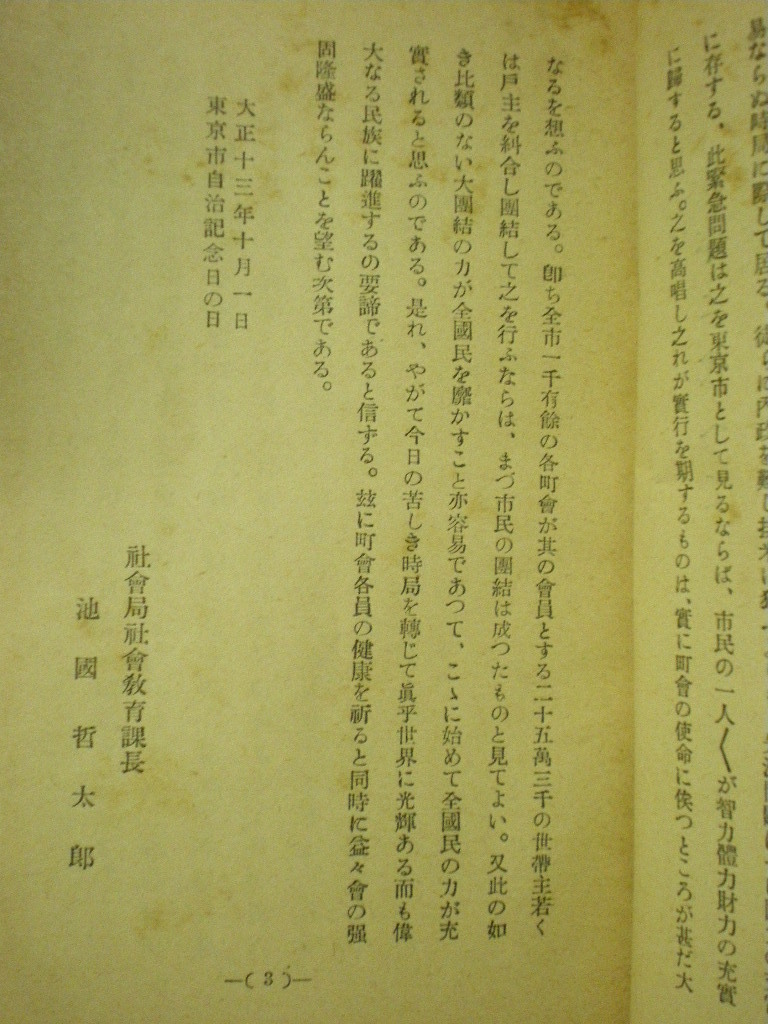 に存する、此緊急問題は之を東京市として見るならば、市民の一人〱が智力體力財力の充實
に歸すると思ふ。之を高唱し之れが實行を期するものは、實に町會の使命に俟つところが甚だ大
なるを想ふのである。卽ち全市一千有餘の各町會が其の會員とする二十五萬三千の世帶主若く
は戶主を糾合し團結して之を行ふならは、まづ市民の團結は成つたものと見てよい。又此の如
き比類のない大團結の力が全國民を靡かすこと亦容易であつて、こゝに始めて全國民の力が充
實されると思ふのである。是れ、やがて今日の苦しき時局を轉じて眞乎世界に光輝ある而も偉
大なる民族に躍進するの要諦であると信ずる。玆に町會各員の健康を祈ると同時に益々會の强
固隆盛ならんことを望む次第である。
大正十三年十月一日
東京市自治記念日の日
社會局社會敎育課長
池國哲太郞
—( 3 )—